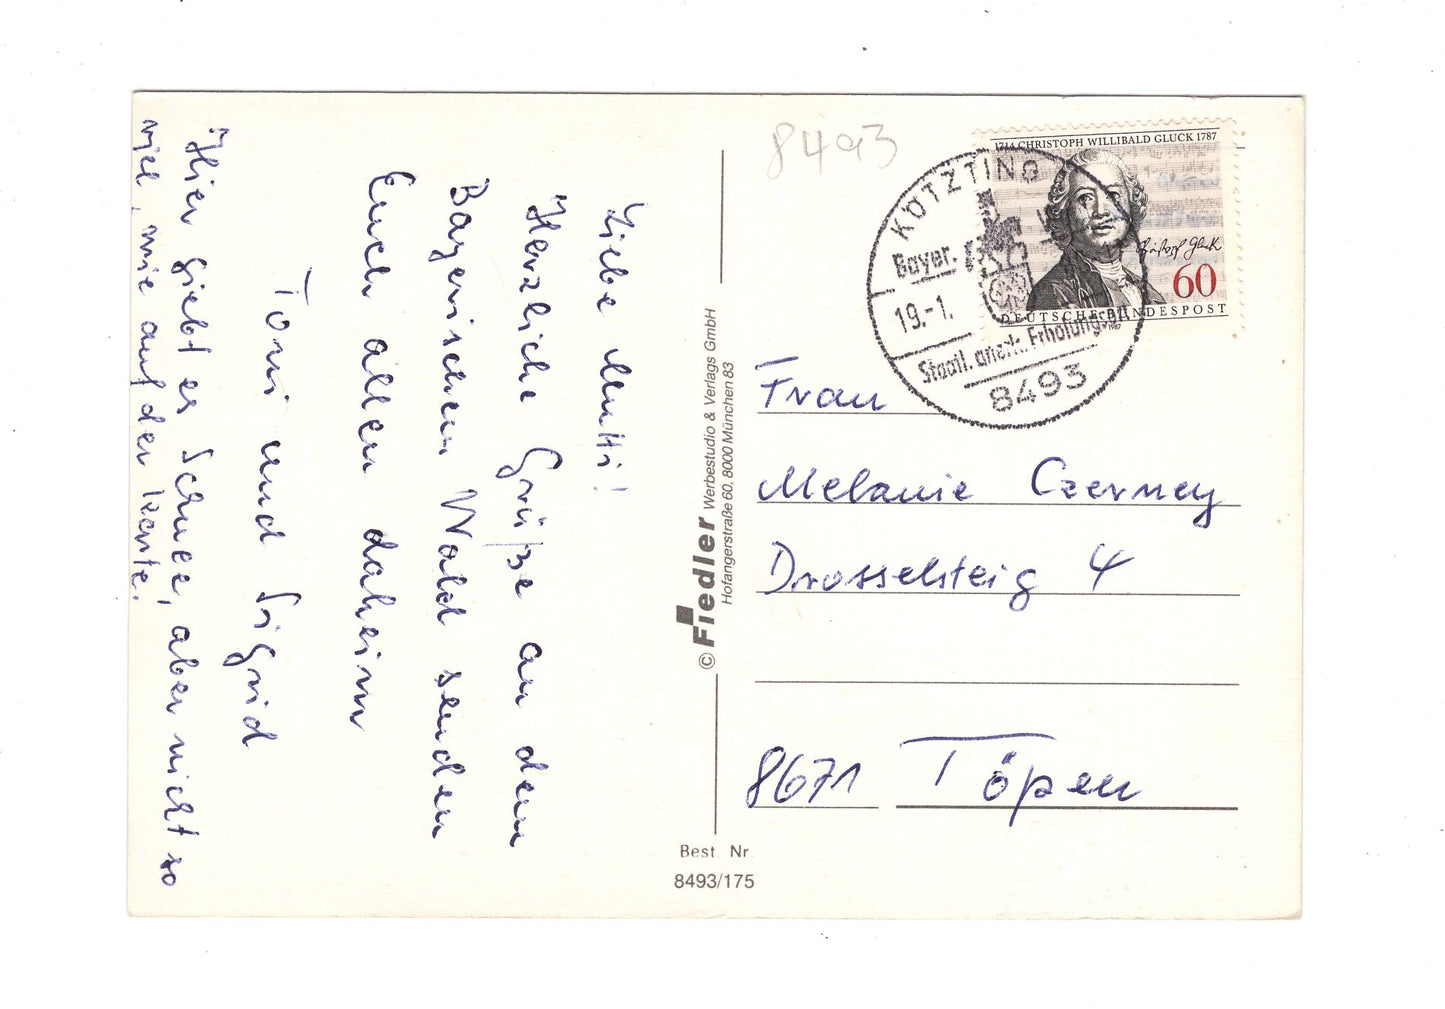 Liebe Mutti!
Herzliche Grüße an dem
Bayerischen Wald senden
Euch allen daheim
Toni und Sigrid
Hier giebt es Schnee, aber nicht so
viel, wie auf der Karte.
© Fiedler Werbestudio & Verlags GmbH
Hofangerstraße 60, 8000 München 83
Best. Nr.
8493/175
8493
1714 CHRISTOPH WILLIBALD GLUCK 1787
Christoph Gluck
60
DEUTSCHE BUNDESPOST
1987
KÖTZTING
Bayer.
19.-1.
Staatl. anerk. Erholungsort
8493
Frau
Melanie Czerney
Drosselsteig 4
8671 Töpen